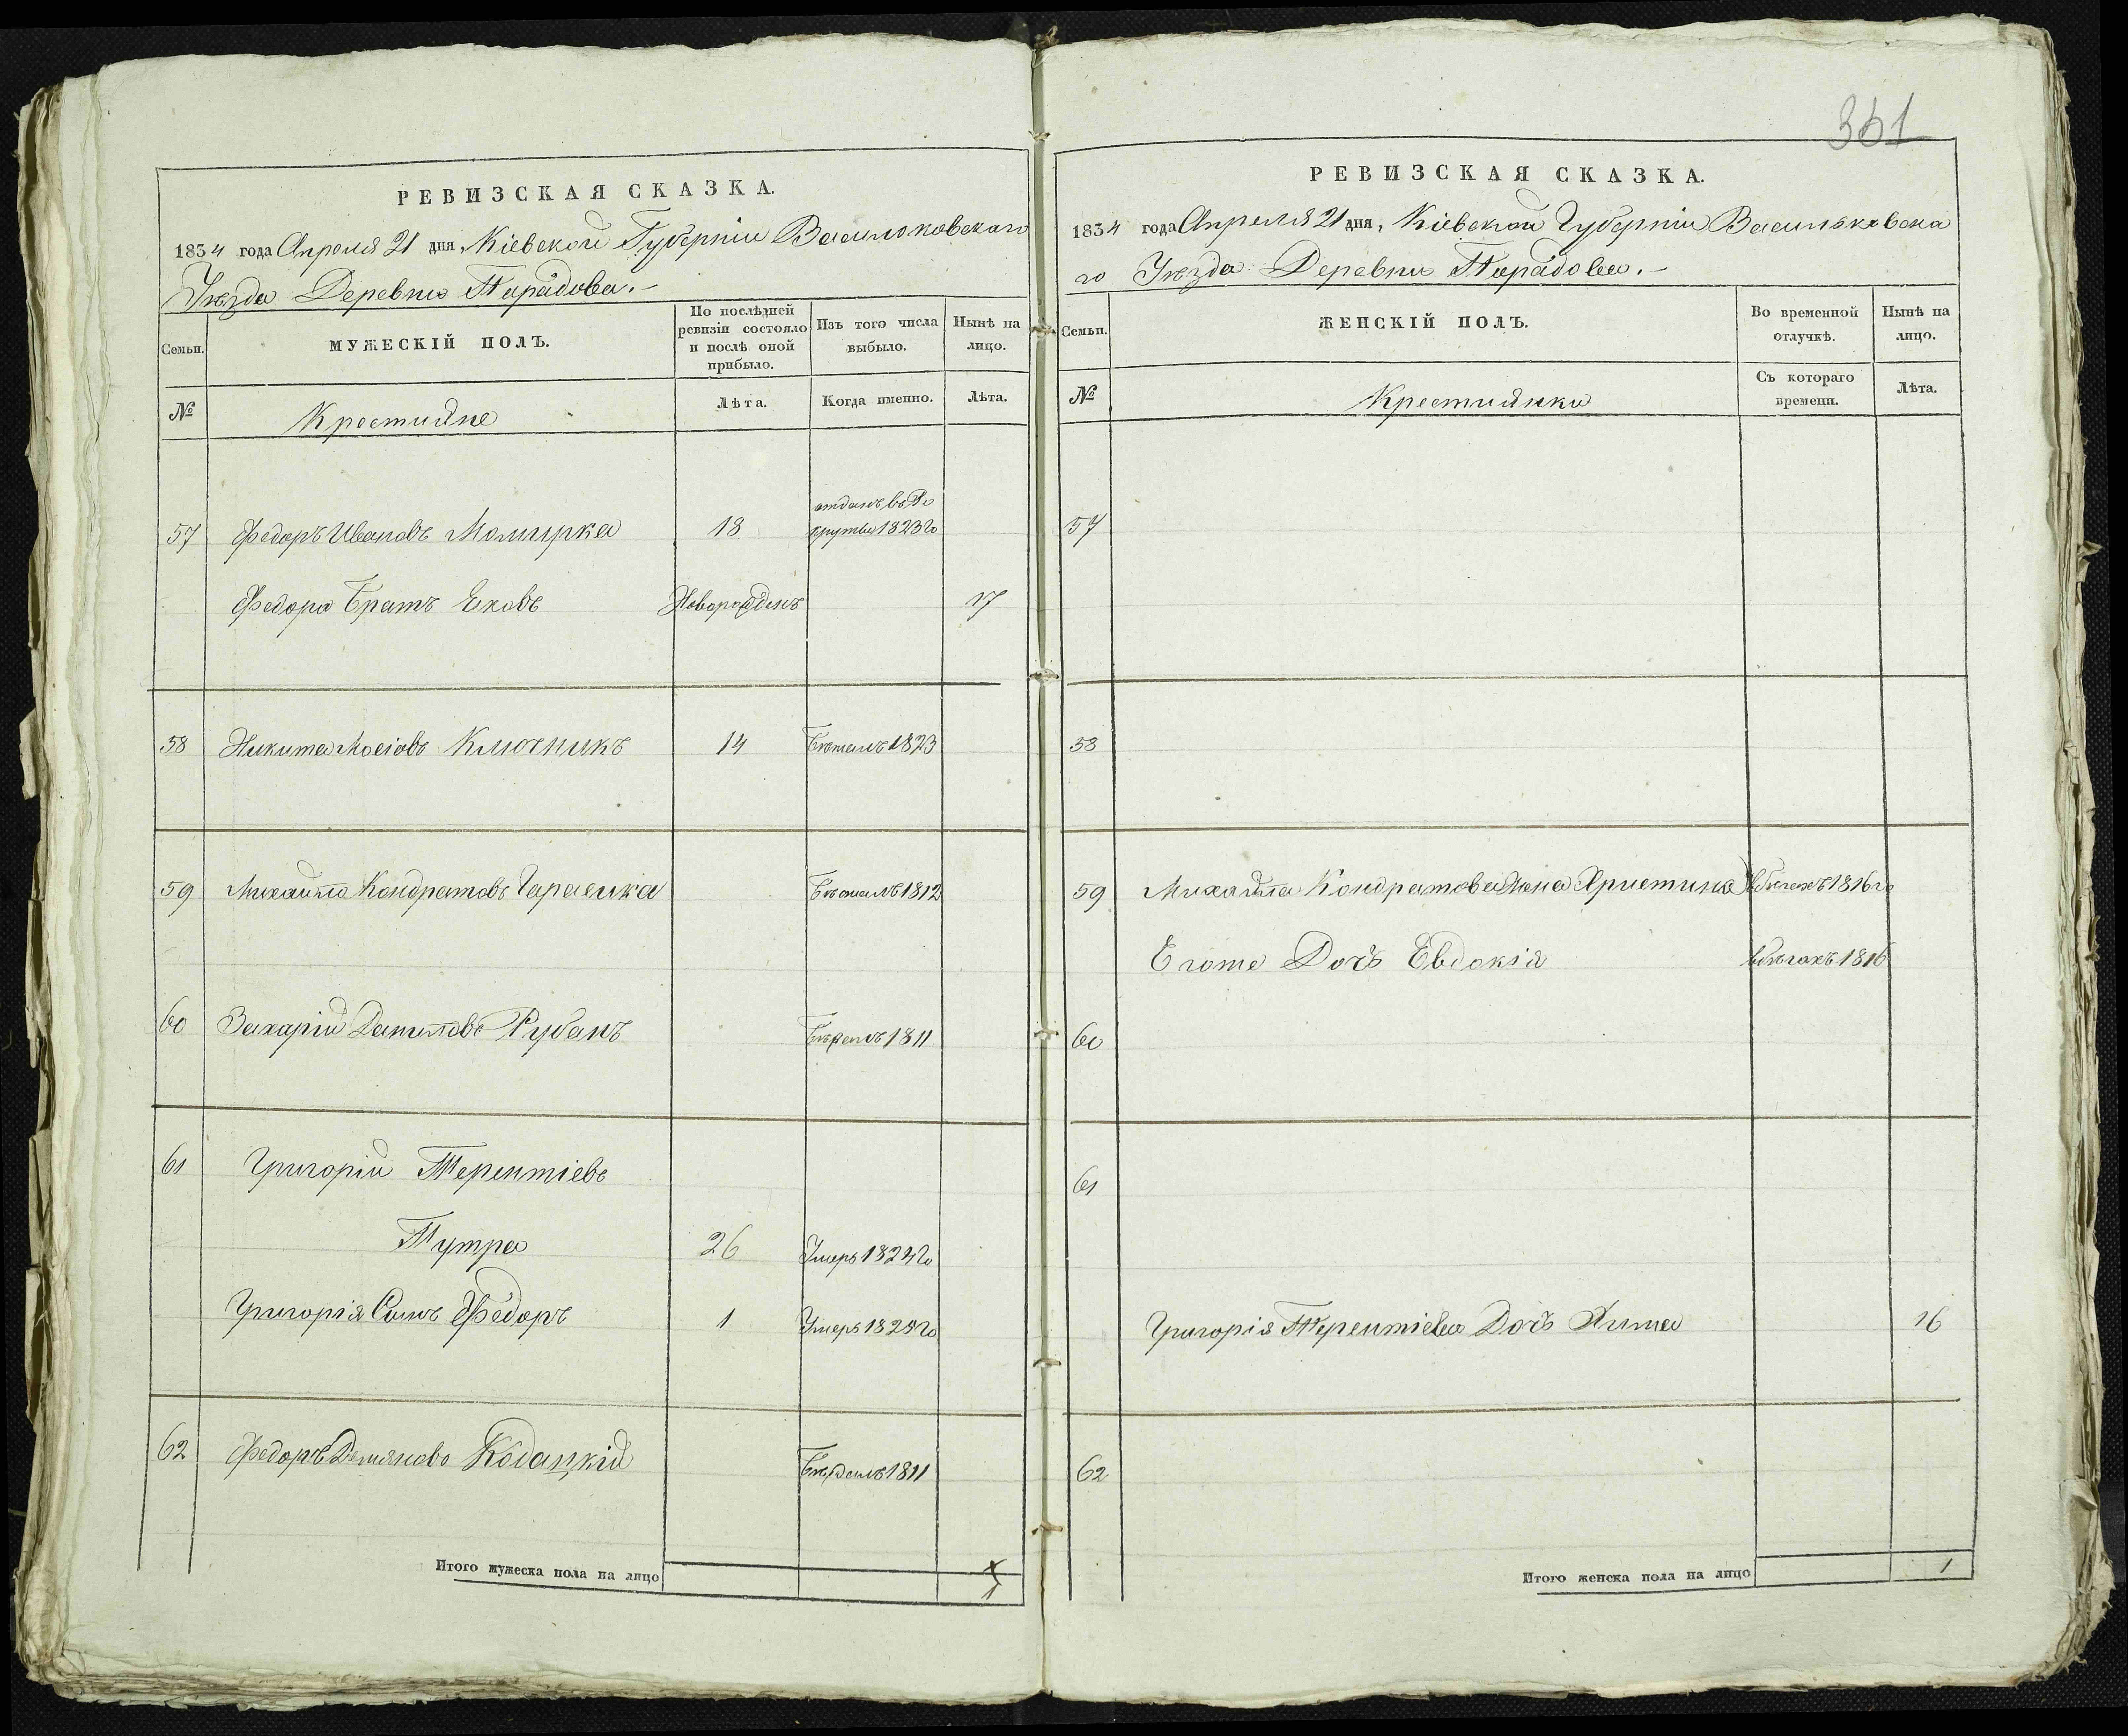 361
РЕВИЗСКАЯ СКАЗКА.
1834 года Апреля 21 дня Кіевской Губерніи Васильковского
Уезда Деревни Парадова.
Семьи.
МУЖЕСКІЙ ПОЛЪ.
По послѣдней ревизіи состояло и послѣ оной прибыло.
Изъ того числа выбыло.
Нынѣ на лицо.
№
Крестияне
Лѣта.
Когда именно.
Лѣта.
отданъ въ Ре
57 Федоръ Ивановъ 18 круты 1823го
Федора Братъ Яковъ Новорожденъ 17
58 Никита Мосіовъ Ключникъ 14 Бежалъ 1823
59 Михайло Кондратовъ Бежалъ 1812
60 Захарій Даниловъ Рубанъ Бежалъ 1811
61 Григорій Терентіевъ
26 Умеръ 1824го
Григорія Сынъ Федоръ 1 Умеръ 1825го
62 Федоръ Демяновъ Кодацкій Бежалъ 1811
Итого мужеска пола на лицо
РЕВИЗСКАЯ СКАЗКА.
1834 года Апреля 21 дня, Кіевской Губерніи Васильковска
го Уезда Деревни Парадова.
Семьи.
ЖЕНСКІЙ ПОЛЪ.
Во временной отлучкѣ.
Нынѣ на лицо.
№
Крестиянки
Съ котораго времени.
Лѣта.
57
58
59 Михайла Кондратова Жена Христина вбегахъ 1816го
Егоже Дочъ Евдокія вбегахъ 1816
60
61
Григорія Терентіева Дочъ 16
62
Итого женска пола на лицо 1